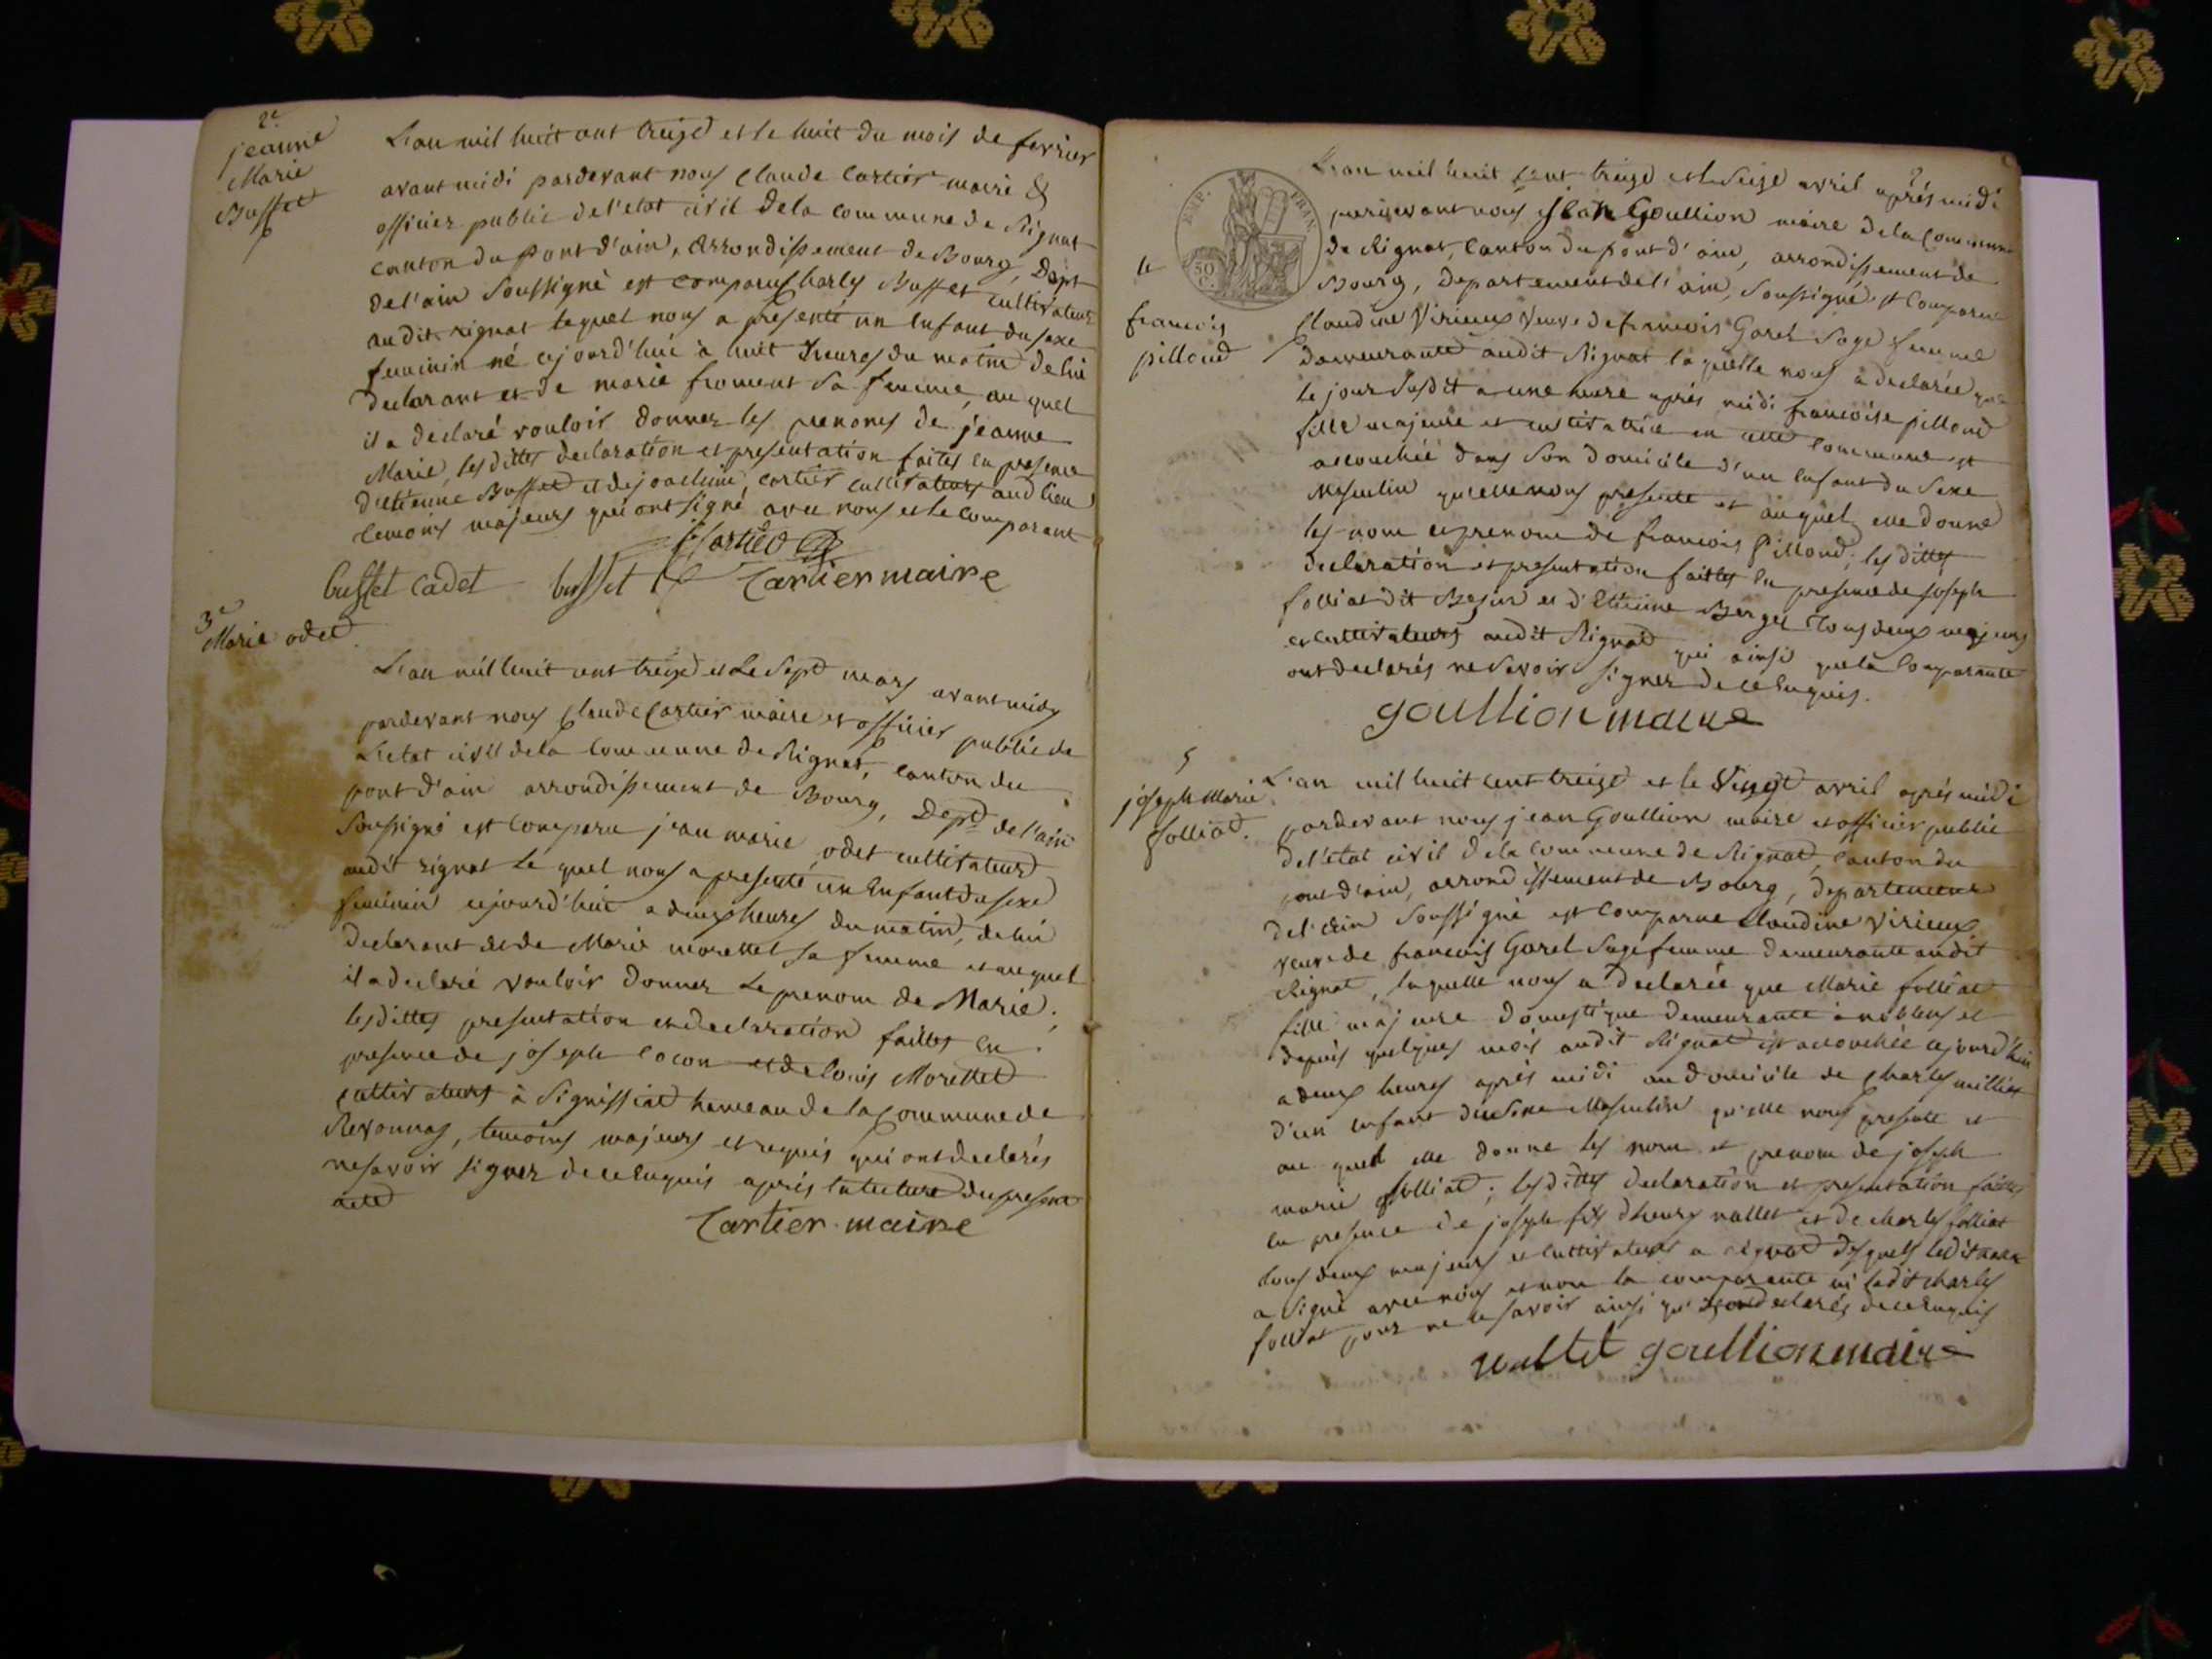 2e
jeanne
Marie
Buffet
L'an mil huit cent treize et le huit du mois de fevrier
avant midi pardevant nous Claude Cartier maire &
officier public de l'etat civil de la commune de Rignat
canton du pont d'ain, arrondissement de Bourg, Dept
de l'ain soussigné est comparu Charles Buffet cultivateur
audit rignat lequel nous a presenté un enfant du sexe
feminin né cejourd'hui à huit heures du matin de lui
declarant et de marie froment sa femme, au quel
il a declaré vouloir donner les prenoms de jeanne
Marie, les dittes declaration et presentation faites en presence
d'etienne Buffet et de joachim cartier cultivateurs aud lieu
temoins majeurs qui ont signé avec nous et le comparant
Cartier
buffet cadet buffet Cartier maire
3e
Marie odet
L'an mil huit cent treize et Le Sept mars avant midy
pardevant nous Claude Cartier maire et officier public de
L'etat civil de la commune de Rignat, canton du
pont d'ain arrondissement de Bourg, Dept de l'ain
soussigné est comparu jean marie odet cultivateur
audit rignat Le quel nous a presenté un Enfant du sexe
feminin cejourd'hui a deux heures du matin, de lui
declarant et de Marie morettet sa femme et auquel
il a declaré vouloir donner Le prenom de Marie;
les dittes presentation et declaration faittes en
presence de joseph cocon et de louis Morettet
cultivateurs à Signissiat hameau de la commune de
Revonnas, temoins majeurs et requis qui ont declarés
ne savoir signer de ce Enquis après lecture du present
acte
Cartier maire
EMP. FRAN.
50
C.
4
francois
pilloud
L'an mil huit cent treize et le Seize avril après midi
pardevant nous jean Goullion maire de la commune
de Rignat, Canton du pont d'ain, arrondissement de
Bourg, Departement de l'ain, soussigné est Comparue
Claudine Virieux veuve de francois Garel Sage femme
demeurante audit Rignat la quelle nous a declarée que
le jour susdit a une heure après midi francoise pilloud
fille majeure et cultivatrice en cette Commune est
accouchée dans son domicile d'un enfant du Sexe
Masculin qu'elle nous presente et auquel elle donne
les nom et prenom de francois Pilloud; les dittes
declaration et presentation faittes en presence de joseph
folliat dit et d'Etienne Berger tous deux majeurs
et cultivateurs audit Rignat qui ainsi que la comparante
ont declarés ne savoir signer de ce Enquis.
goullion maire
5
joseph Marie
folliat.
L'an mil huit cent treize et le Vingt avril après midi
pardevant nous jean Goullion maire et officier public
de l'etat civil de la commune de Rignat, canton du
pont d'ain, arrondissement de Bourg, departement
de l'ain soussigné est comparue Claudine Virieux
veuve de francois Garel Sage femme demeurante audit
Rignat, laquelle nous a declarée que Marie folliat
fille majeure domestique demeurante a et
depuis quelques mois audit Rignat est accouchée cejourd'hui
a deux heures après midi au domicile de Charles
d'un enfant du Sexe Masculin qu'elle nous presente et
au quel elle donne les nom et prenom de joseph
marie folliat; les dittes declaration et presentation faites
en presence de joseph fils d'henry vallet et de Charles folliat
tous deux majeurs et cultivateurs a rignat desquels ledit
a signé avec nous et non la comparante ni ledit Charles
folliat pour ne le savoir ainsi qu'ils ont declarés de ce Enquis
vallet goullion maire